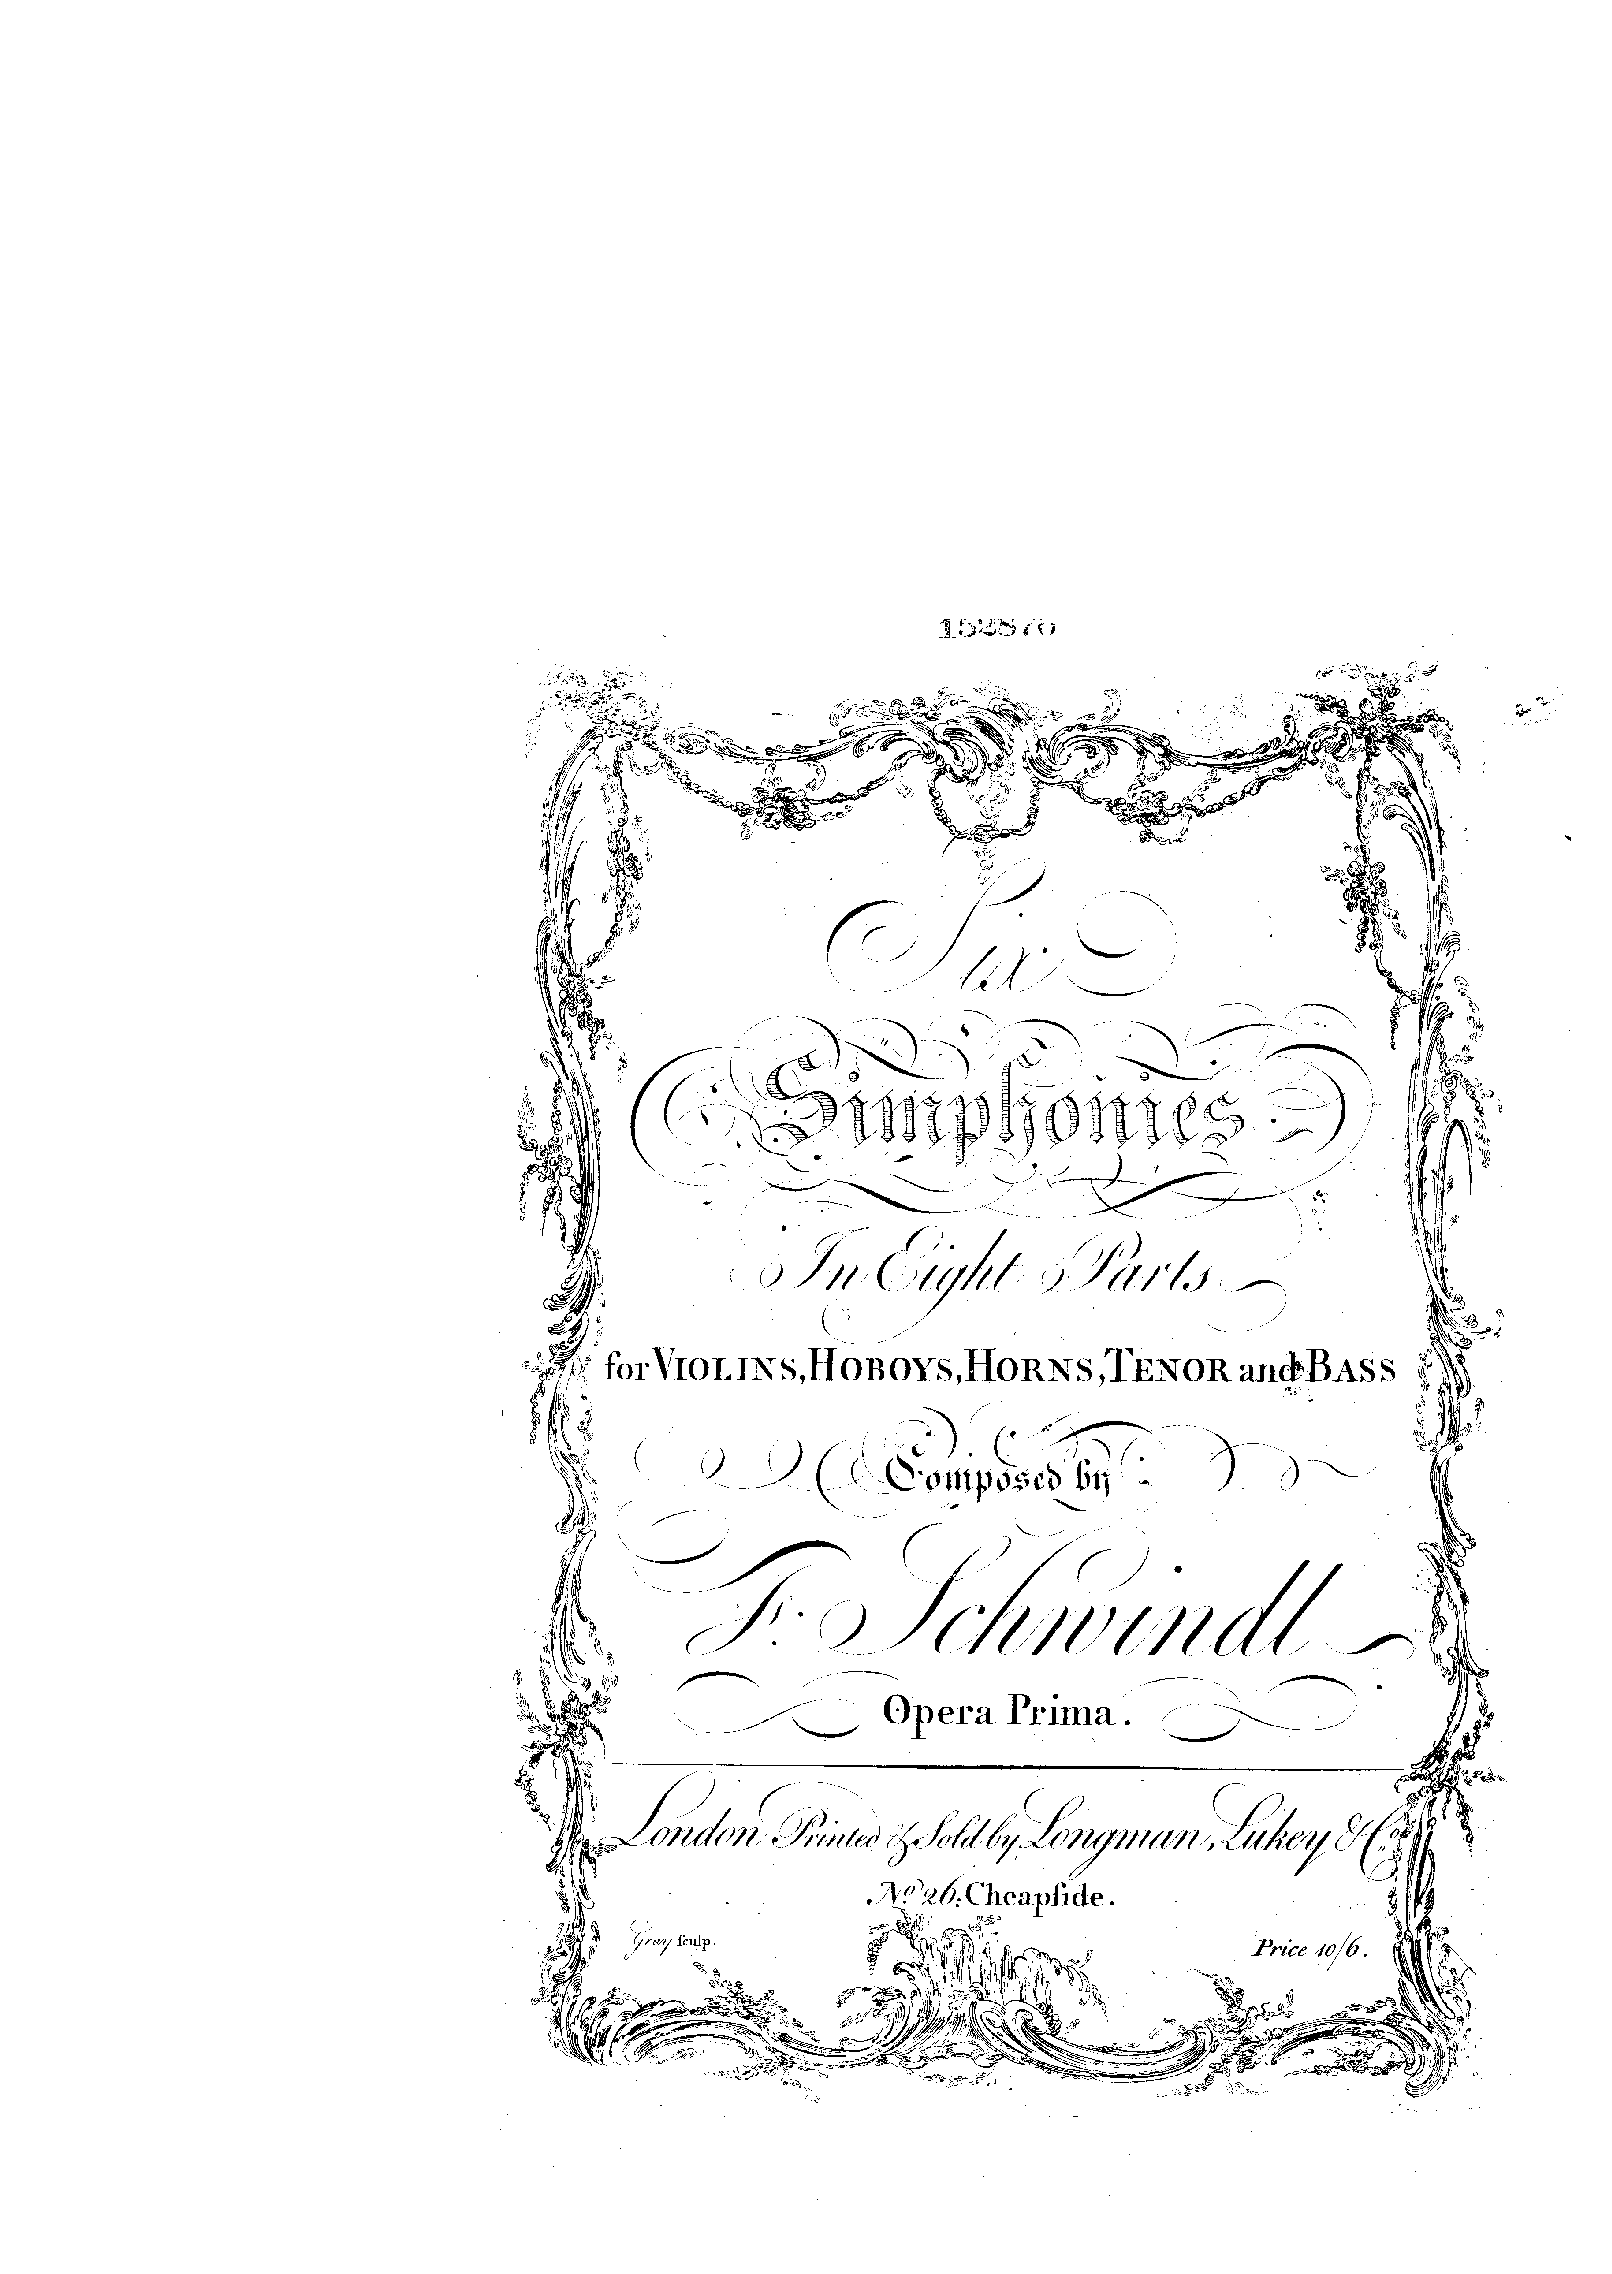 152876
Six
Simphonies
In Eight Parts
for VIOLINS, HOBOYS, HORNS, TENOR and BASS
Composed by
F. Schwindl
Opera Prima.
London Printed & Sold by Longman, Lukey & Co.
No. 26. Cheapſide.
Gray ſculp.
Price 10/6.